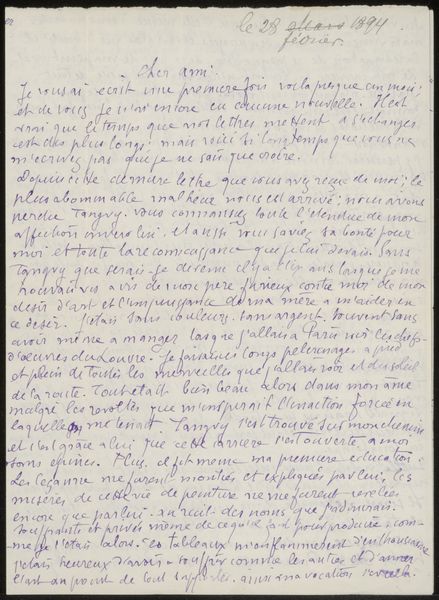 le 28 mars 1894
février.
Cher ami
Je vous ai écrit une première fois voilà presque un mois;
et de vous je n'ai encore eu aucune nouvelle. Il est
vrai que le temps que nos lettres mettent à s'échanger
est des plus longs; mais voici si longtemps que vous ne
m'écrivez pas que je ne sais que croire.
Depuis cette dernière lettre que vous avez reçue de moi; le
plus abominable malheur nous est arrivé; nous avons
perdu Tanguy. Vous connaissez toute l'étendue de mon
affection envers lui. et aussi vous saviez sa bonté pour
moi et toute la reconnaissance que je lui devais. Sans
Tanguy que serais-je devenu il y a ans lorsque je me
trouvais vis à vis de mon père furieux contre moi de mon
désir d'art et l'impuissance de ma mère à m'aider en
ce désir. J'étais sans couleurs. sans argent, souvent sans
avoir même à manger lorsque j'allais à Paris voir les chefs-
d'œuvres du Louvre. Je faisais ces longs pèlerinages à pied
et plein de toutes les merveilles que j'allais voir et du soleil
de la route. Tout était bien beau alors dans mon âme
malgré les révoltes que m'inspirait l'inaction forcée en
laquelle on me tenait. Tanguy s'est trouvé sur mon chemin
et c'est grâce à lui que cette carrière s'est ouverte à moi
sans épines. Plus, il fit même ma première éducation.
Les Cézanne me furent montrés et expliqués par lui; les
misères de cette vie de peintre ne me furent révélées
encore que par lui. au récit des noms que j'admirais.
Souffrants et privés même de ce qu'il faut pour produire, com-
me je l'étais alors. les tableaux m'enflammaient d'enthousiasme
j'étais heureux d'avoir à souffrir comme les autres et d'aimer
l'art au point de tout supporter. ainsi ma vocation